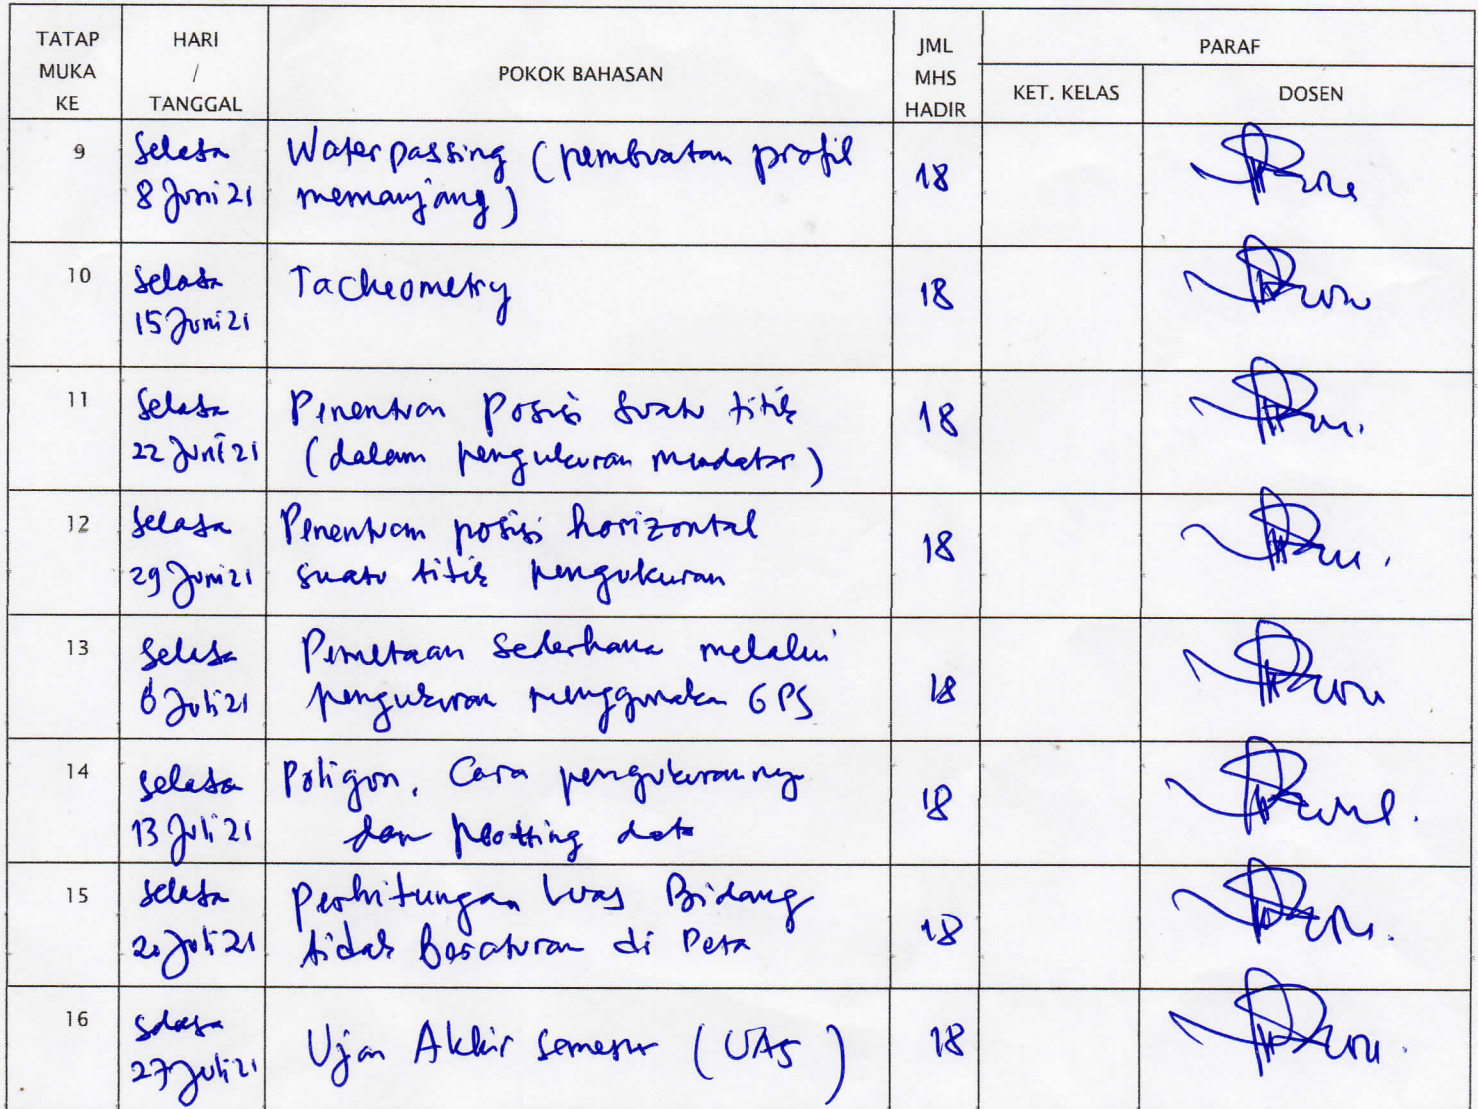 TATAP MUKA KE
HARI / TANGGAL
POKOK BAHASAN
JML MHS HADIR
PARAF
KET. KELAS
DOSEN
9
Selasa
8 Juni 21
Waterpassing (pembuatan profil
memanjang)
18
10
Selasa
15 Juni 21
Tacheometry
18
11
Selasa
22 Juni 21
Penentuan Posisi suatu titik
(dalam pengukuran mendatar)
18
12
Selasa
29 Juni 21
Penentuan posisi horizontal
suatu titik pengukuran
18
13
Selasa
6 Juli 21
Pemetaan Sederhana melalui
pengukuran menggunakan GPS
18
14
Selasa
13 Juli 21
Poligon, Cara pengukurannya
dan plotting data
18
15
Selasa
20 Juli 21
Perhitungan luas Bidang
tidak Beraturan di Peta
18
16
Selasa
27 Juli 21
Ujian Akhir Semester (UAS)
18